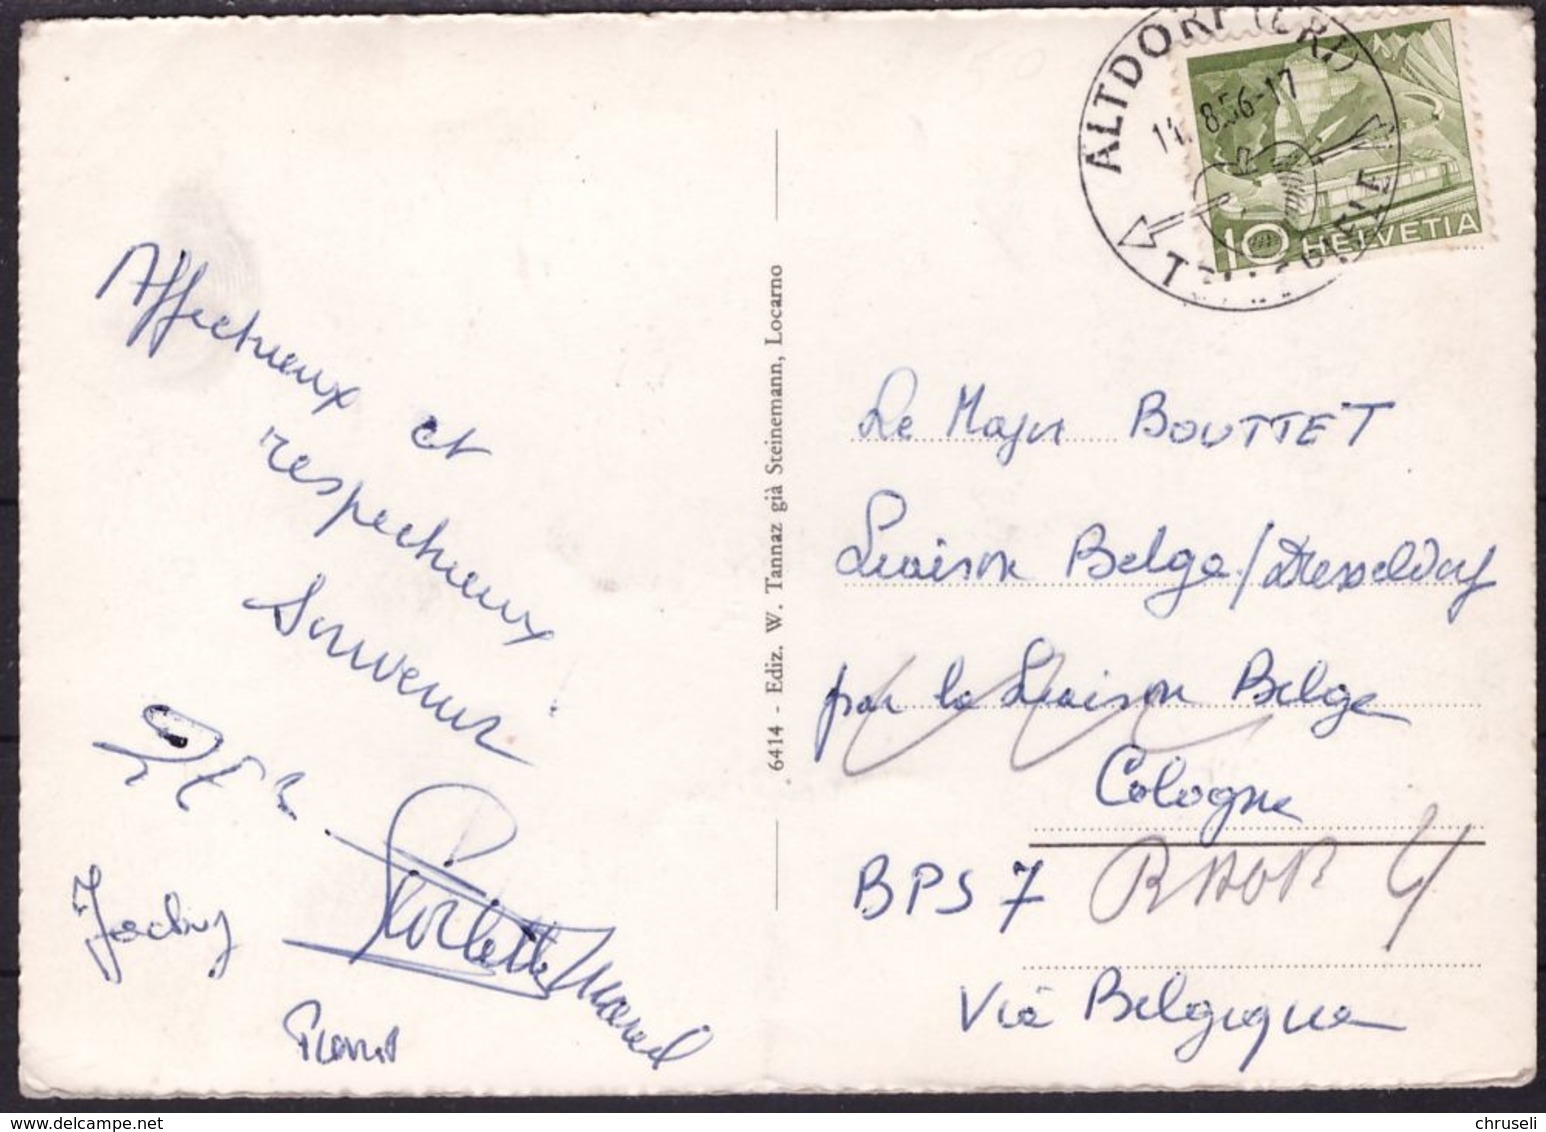 Affectueux et
respectueux
Souvenir
Jacky
Marcel
6414 - Ediz. W. Tannaz già Steinemann, Locarno
ALTDORF (URI)
14. 8.56-17
10 HELVETIA
Le Major BOUTTET
Liaison Belge/Dusseldorf
par la Liaison Belge
Cologne
BPS 7
4
Via Belgique
chruseli